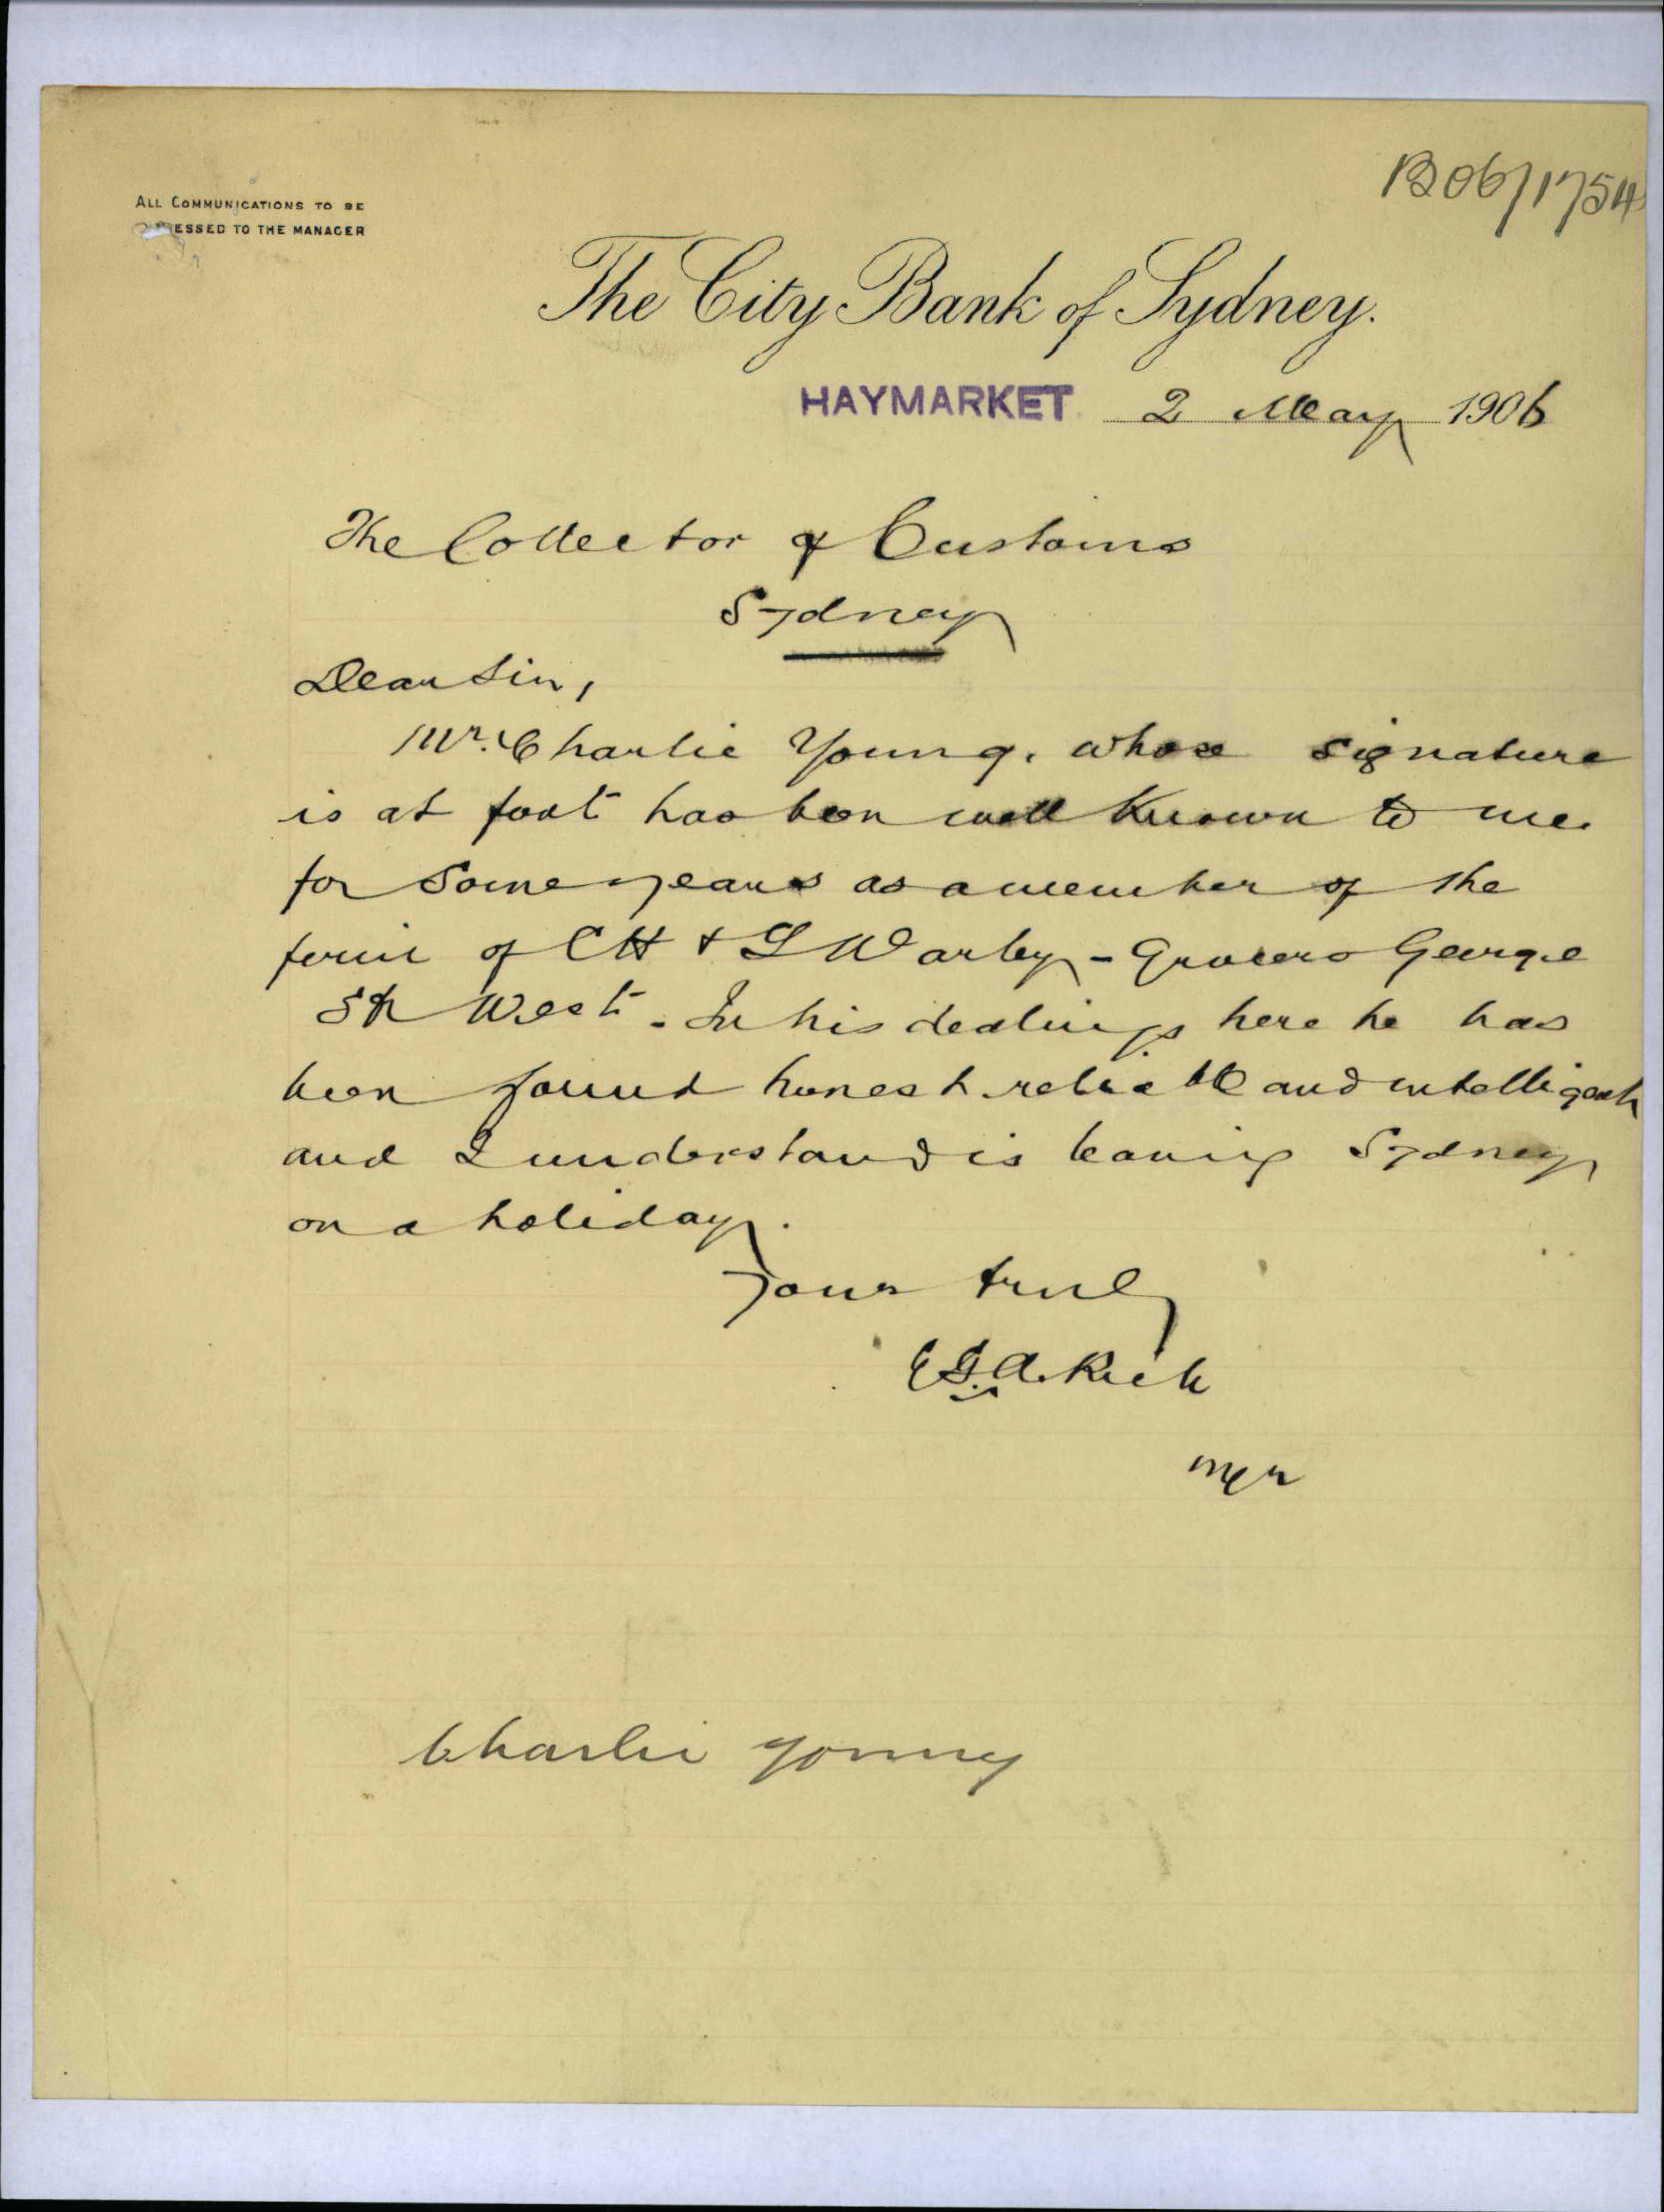 B06/1754
ALL COMMUNICATIONS TO BE
ESSED TO THE MANAGER
The City Bank of Sydney.
HAYMARKET 2 May 1906
The Collector of Customs
Sydney
Dear Sir,
Mr. Charlie Young, whose signature
is at foot has been well known to me
for some years as a member of the
firm of C H & L Warley - Grocers George
St West. In his dealings here he has
been found honest reliable and intelligent
and I understand is leaving Sydney
on a holiday.
Yours truly
A. Rich
Mgr
Charlie Young